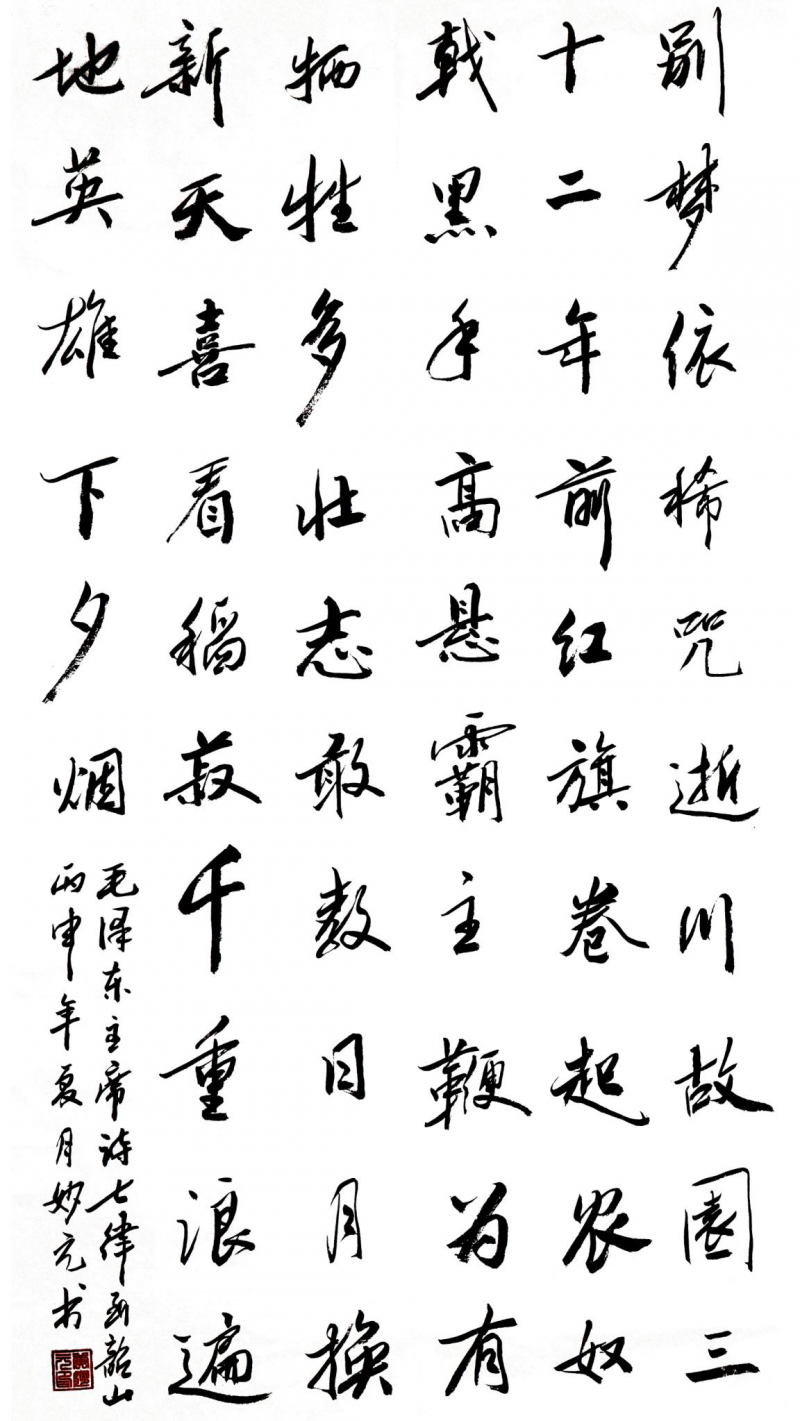 别梦依稀咒逝川故园三
十二年前红旗卷起农奴
戟黑手高悬霸主鞭为有
牺牲多壮志敢教日月换
新天喜看稻菽千重浪遍
地英雄下夕烟
毛泽东主席诗七律到韶山
丙申年夏月妙元书